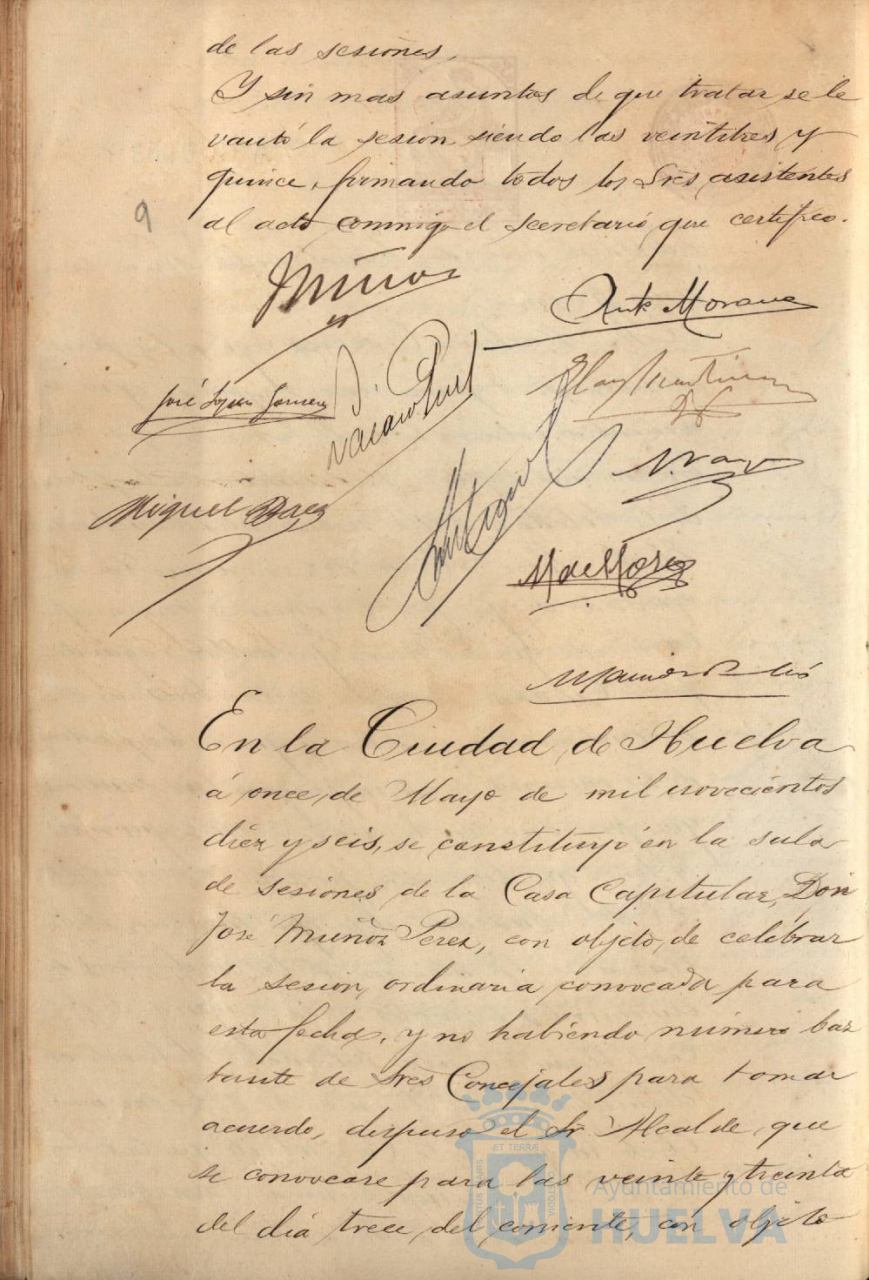 de las sesiones.
Y sin mas asuntos de que tratar se le
vantó la sesion siendo las veintitres y
quince, firmando todos los Sres asistentes
al acto conmigo el secretario que certifico.
9
Muñoz
Antº Morano
José López Gomez
Miguel Baez
M de Mora
En la Ciudad de Huelva
á once de Mayo de mil novecientos
diez y seis, se constituyó en la sala
de sesiones de la Casa Capitular, Don
José Muñoz Perez, con objeto de celebrar
la sesion ordinaria convocada para
esta fecha, y no habiendo número bas
tante de Sres Concejales para tomar
acuerdo, dispuso el Sr. Alcalde, que
se convocase para las veinte y treinta
del dia trece del corriente, con objeto
Ayuntamiento de
HUELVA